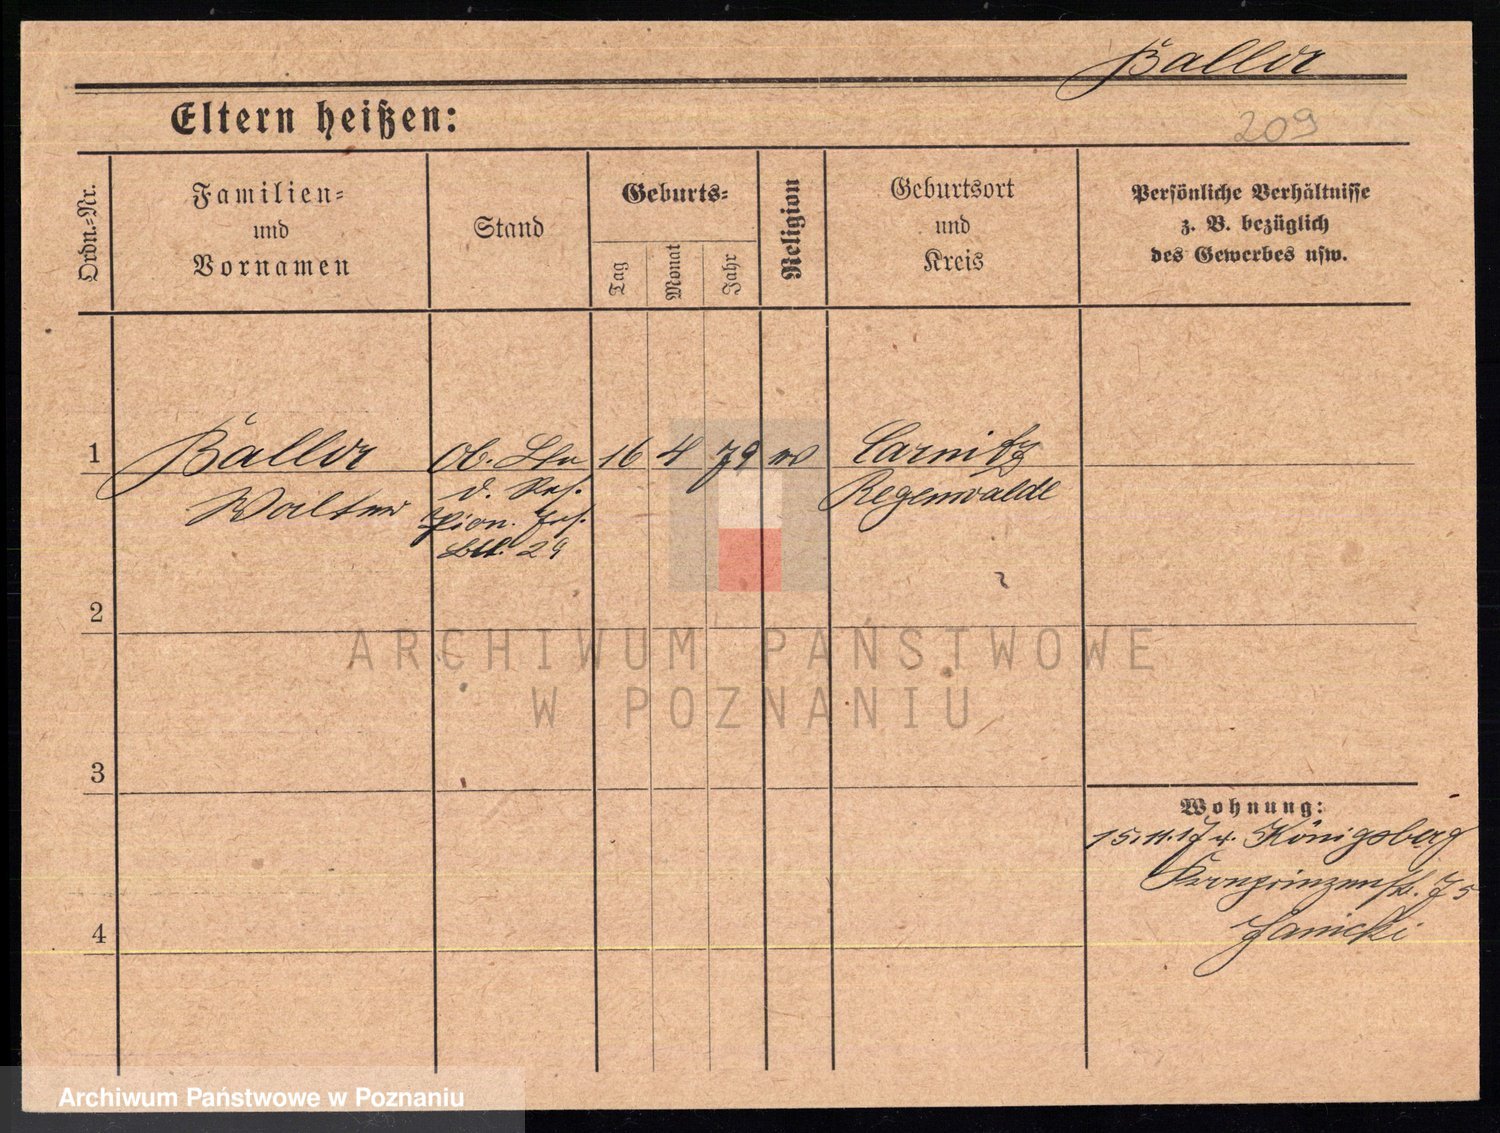 Ballor
209
Eltern heißen:
Ordn.=Nr.
Familien=
und
Vornamen
Stand
Geburts=
Tag
Monat
Jahr
Religion
Geburtsort
und
Kreis
Persönliche Verhältnisse
z. B. bezüglich
des Gewerbes usw.
1
Ballor
Walter
Ob. Ltn
d. Res.
Pion.
Btl. 29
16
4
79
Carnitz
Regenwalde
2
3
4
Wohnung:
15.11.17 v. Königsberg
Kronprinzenstr. 75
Janicki
ARCHIWUM PAŃSTWOWE
W POZNANIU
Archiwum Państwowe w Poznaniu